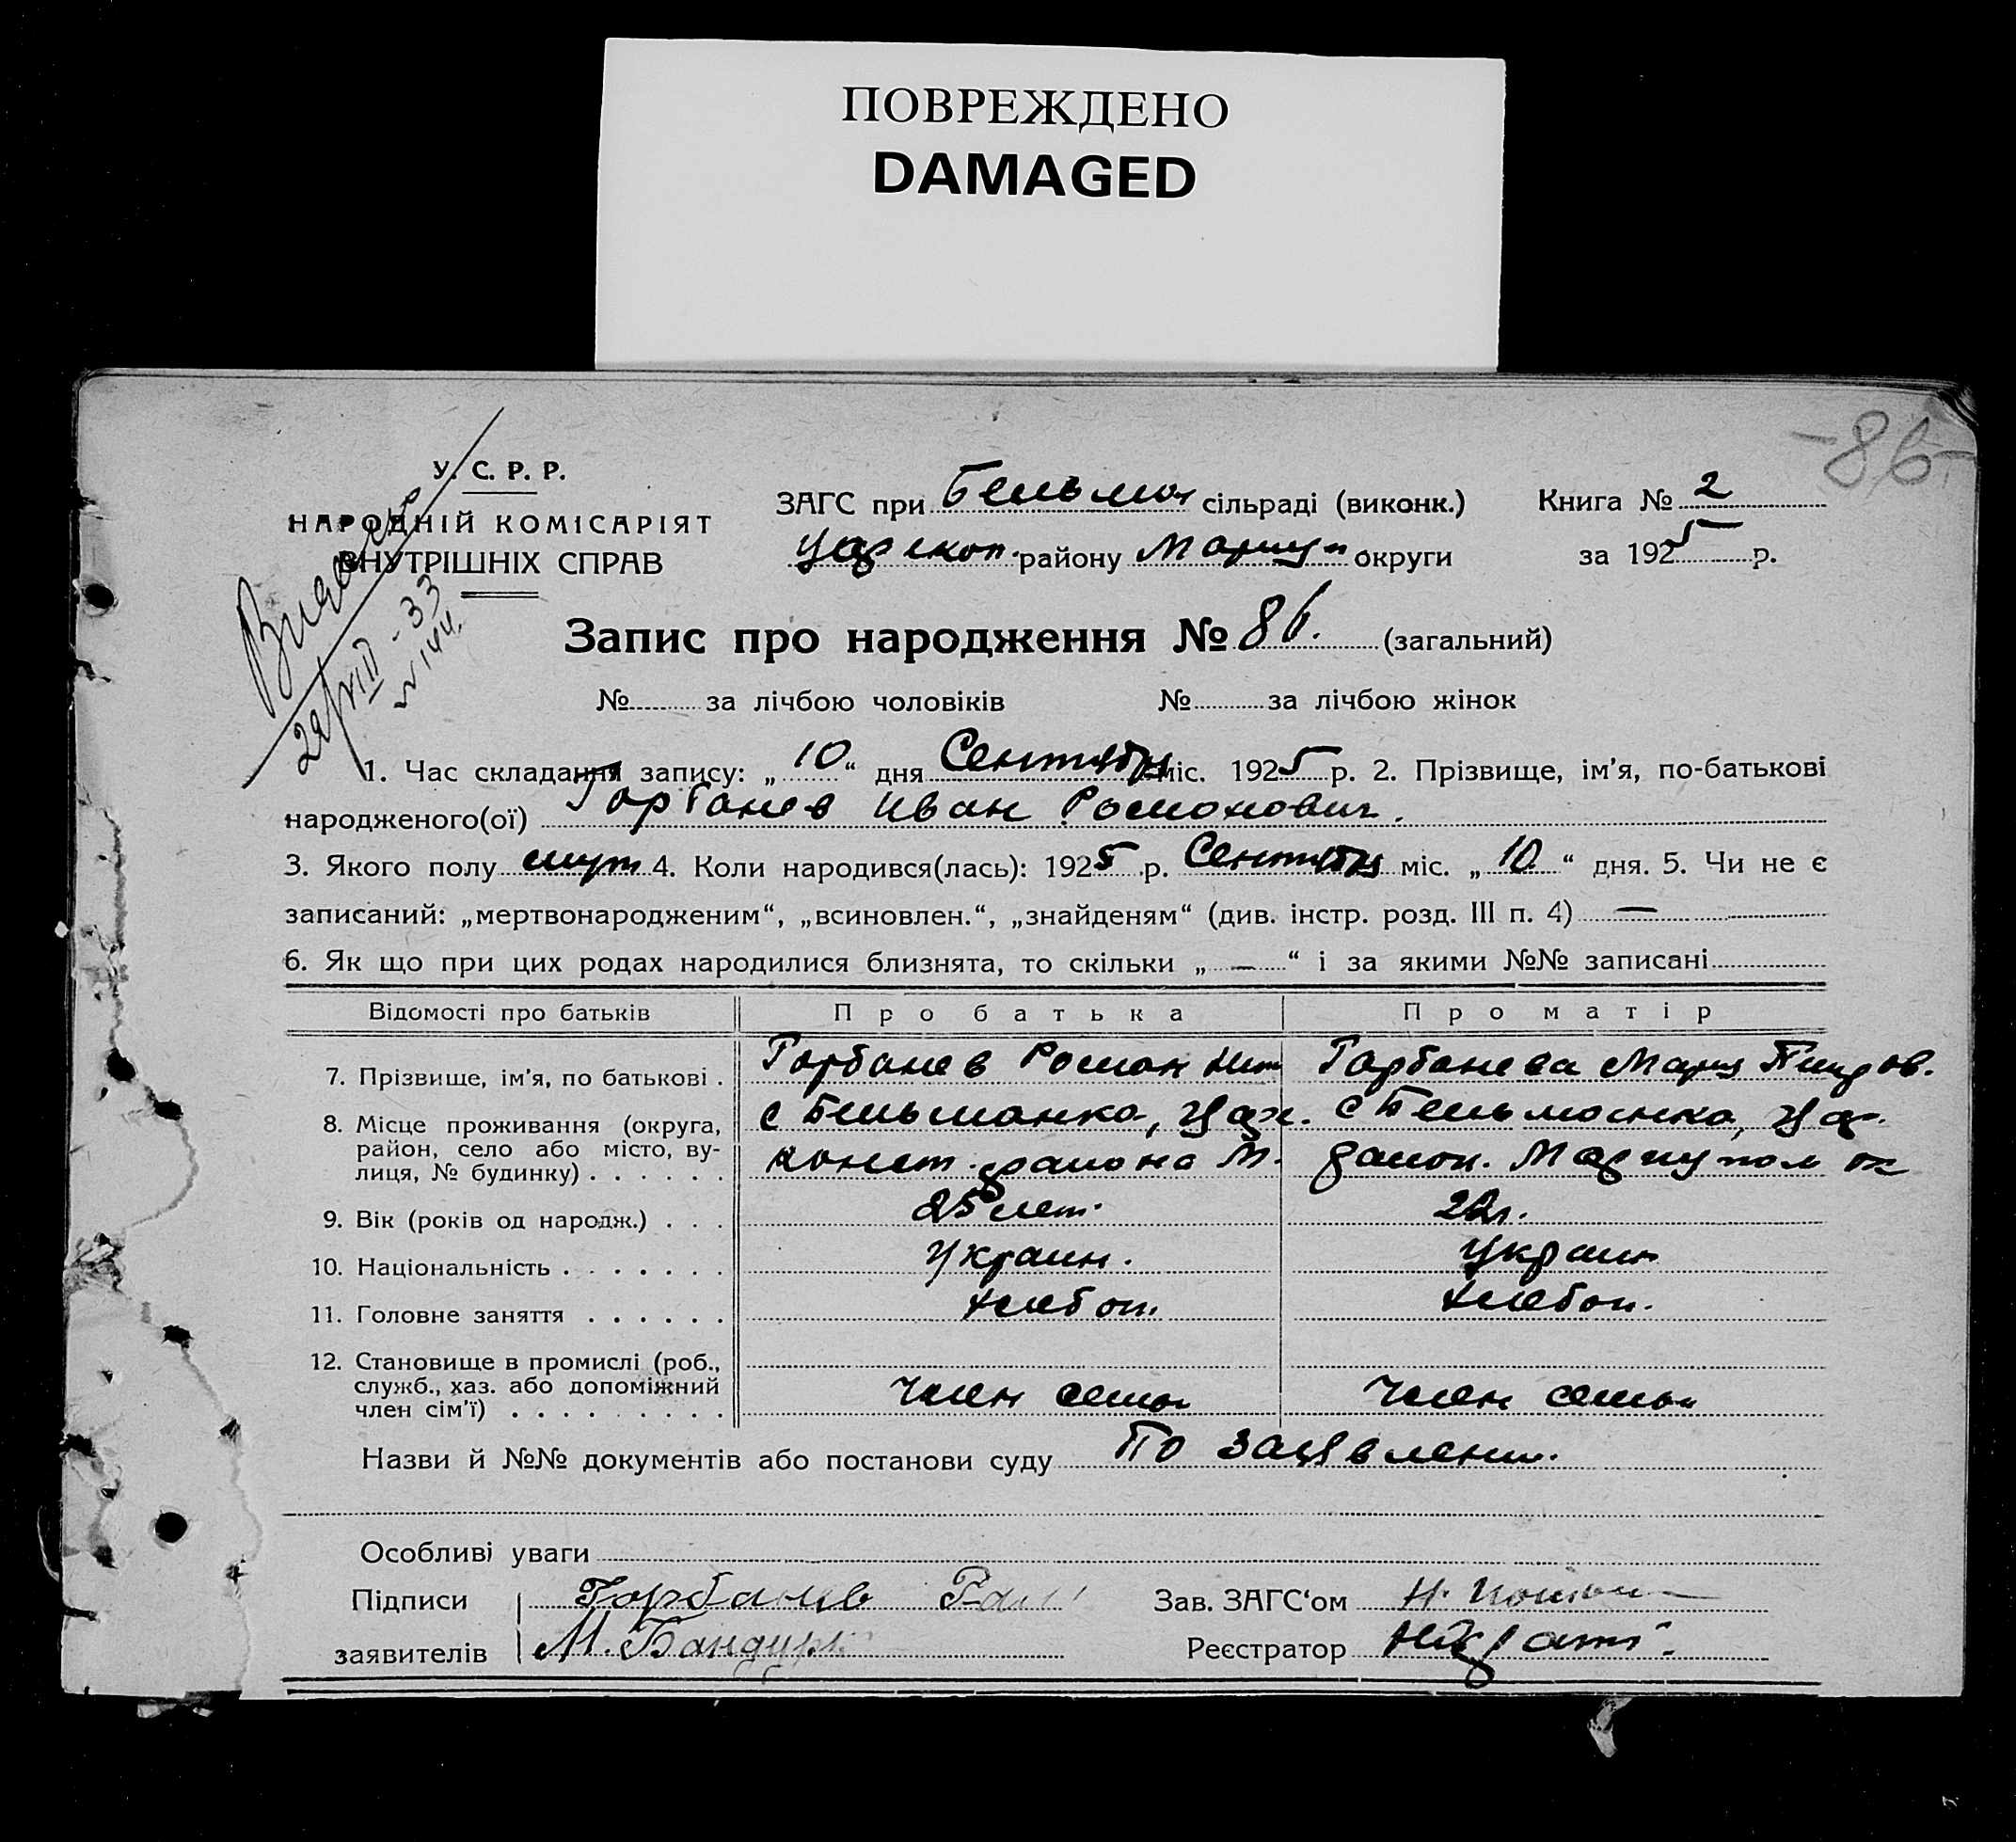 ПОВРЕЖДЕНО
DAMAGED
-86-
У. С. Р. Р.
НАРОДНІЙ КОМІСАРІЯТ
ВНУТРІШНІХ СПРАВ
29/VIII - 33
N 144.
ЗАГС при Бельман сільраді (виконк.) Книга № 2
Царекон. району Мариуп округи за 1925 р.
Запис про народження № 86. (загальний)
№ за лічбою чоловіків № за лічбою жінок
1. Час складання запису: „10“ дня Сентября міс. 1925 р. 2. Прізвище, ім'я, по-батькові
народженого(ої) Горбанев Иван Романович.
3. Якого полу муж 4. Коли народився(лась): 1925 р. Сентября міс. „10“ дня. 5. Чи не є
записаний: „мертвонародженим“, „всиновлен.“, „знайденям“ (див. інстр. розд. III п. 4) —
6. Як що при цих родах народилися близнята, то скільки „—“ і за якими №№ записані
Відомості про батьків Про батька Про матір
7. Прізвище, ім'я, по батькові . Горбанев Роман Горбанева Мария
8. Місце проживання (округа, с Бельманка, Цар. с Бельманка, Цар.
район, село або місто, ву- конст. района М. район. Мариупол ок
лиця, № будинку) . . . . . .
9. Вік (років од народж.) . . . 25 лет. 22 г.
10. Національність . . . . . . . Украин. Украин
11. Головне заняття . . . . . . хлебоп. хлебоп.
12. Становище в промислі (роб.,
служб., хаз. або допоміжний
член сім'ї) . . . . . . . . . член семьи член семьи
Назви й №№ документів або постанови суду По заявлению.
Особливі уваги
Підписи Горбанев Зав. ЗАГС'ом Н.
заявителів М. Бандур Реєстратор